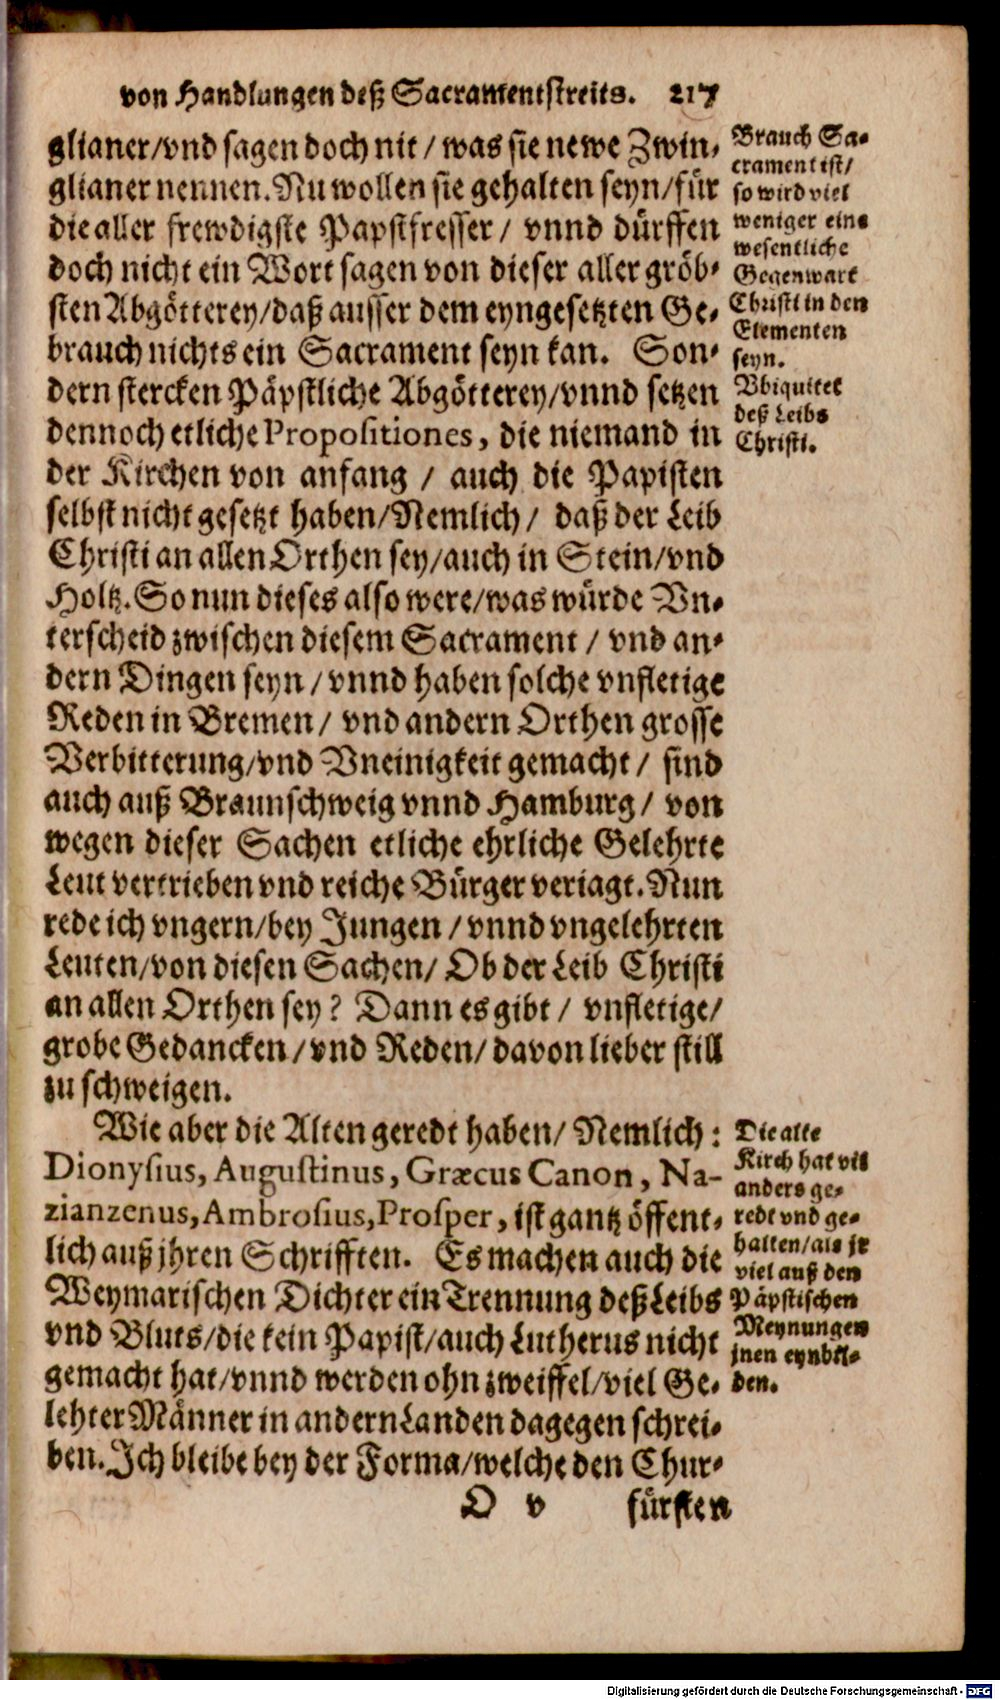 von Handlungen deß Sacramentstreits. 217
glianer/vnd sagen doch nit / was sie newe Zwin-
glianer nennen. Nu wollen sie gehalten seyn/für
die aller frewdigste Papstfresser / vnnd dürffen
doch nicht ein Wort sagen von dieser aller gröb-
sten Abgötterey/daß ausser dem eyngesetzten Ge-
brauch nichts ein Sacrament seyn kan. Son-
dern stercken Päpstliche Abgötterey/vnnd setzen
dennoch etliche Propositiones, die niemand in
der Kirchen von anfang / auch die Papisten
selbst nicht gesetzt haben/Nemlich / daß der Leib
Christi an allen Orthen sey/auch in Stein/vnd
Holtz. So nun dieses also were/was würde Vn-
terscheid zwischen diesem Sacrament / vnd an-
dern Dingen seyn / vnnd haben solche vnfletige
Reden in Bremen / vnd andern Orthen grosse
Verbitterung/vnd Vneinigkeit gemacht / sind
auch auß Braunschweig vnnd Hamburg / von
wegen dieser Sachen etliche ehrliche Gelehrte
Leut vertrieben vnd reiche Bürger veriagt. Nun
rede ich vngern/bey Jungen / vnnd vngelehrten
Leuten/von diesen Sachen/ Ob der Leib Christi
an allen Orthen sey? Dann es gibt / vnfletige/
grobe Gedancken / vnd Reden/ davon lieber still
zu schweigen.
Wie aber die Alten geredt haben/ Nemlich:
Dionysius, Augustinus, Græcus Canon, Na-
zianzenus, Ambrosius, Prosper, ist gantz öffent-
lich auß jhren Schrifften. Es machen auch die
Weymarischen Dichter ein Trennung deß Leibs
vnd Bluts/die kein Papist/auch Lutherus nicht
gemacht hat/vnnd werden ohn zweiffel/viel Ge-
lehter Männer in andern Landen dagegen schrei-
ben. Ich bleibe bey der Forma/welche den Chur-
O v fürsten
Brauch Sa-
crament ist/
so wird viel
weniger eine
wesentliche
Gegenwart
Christi in den
Elementen
seyn.
Vbiquitet
deß Leibs
Christi.
Die alte
Kirch hat vil
anders ge-
redt vnd ge-
halten/als jr
viel auß den
Päpstischen
Meynungen
jnen eynbil-
den.
Digitalisierung gefördert durch die Deutsche Forschungsgemeinschaft - DFG